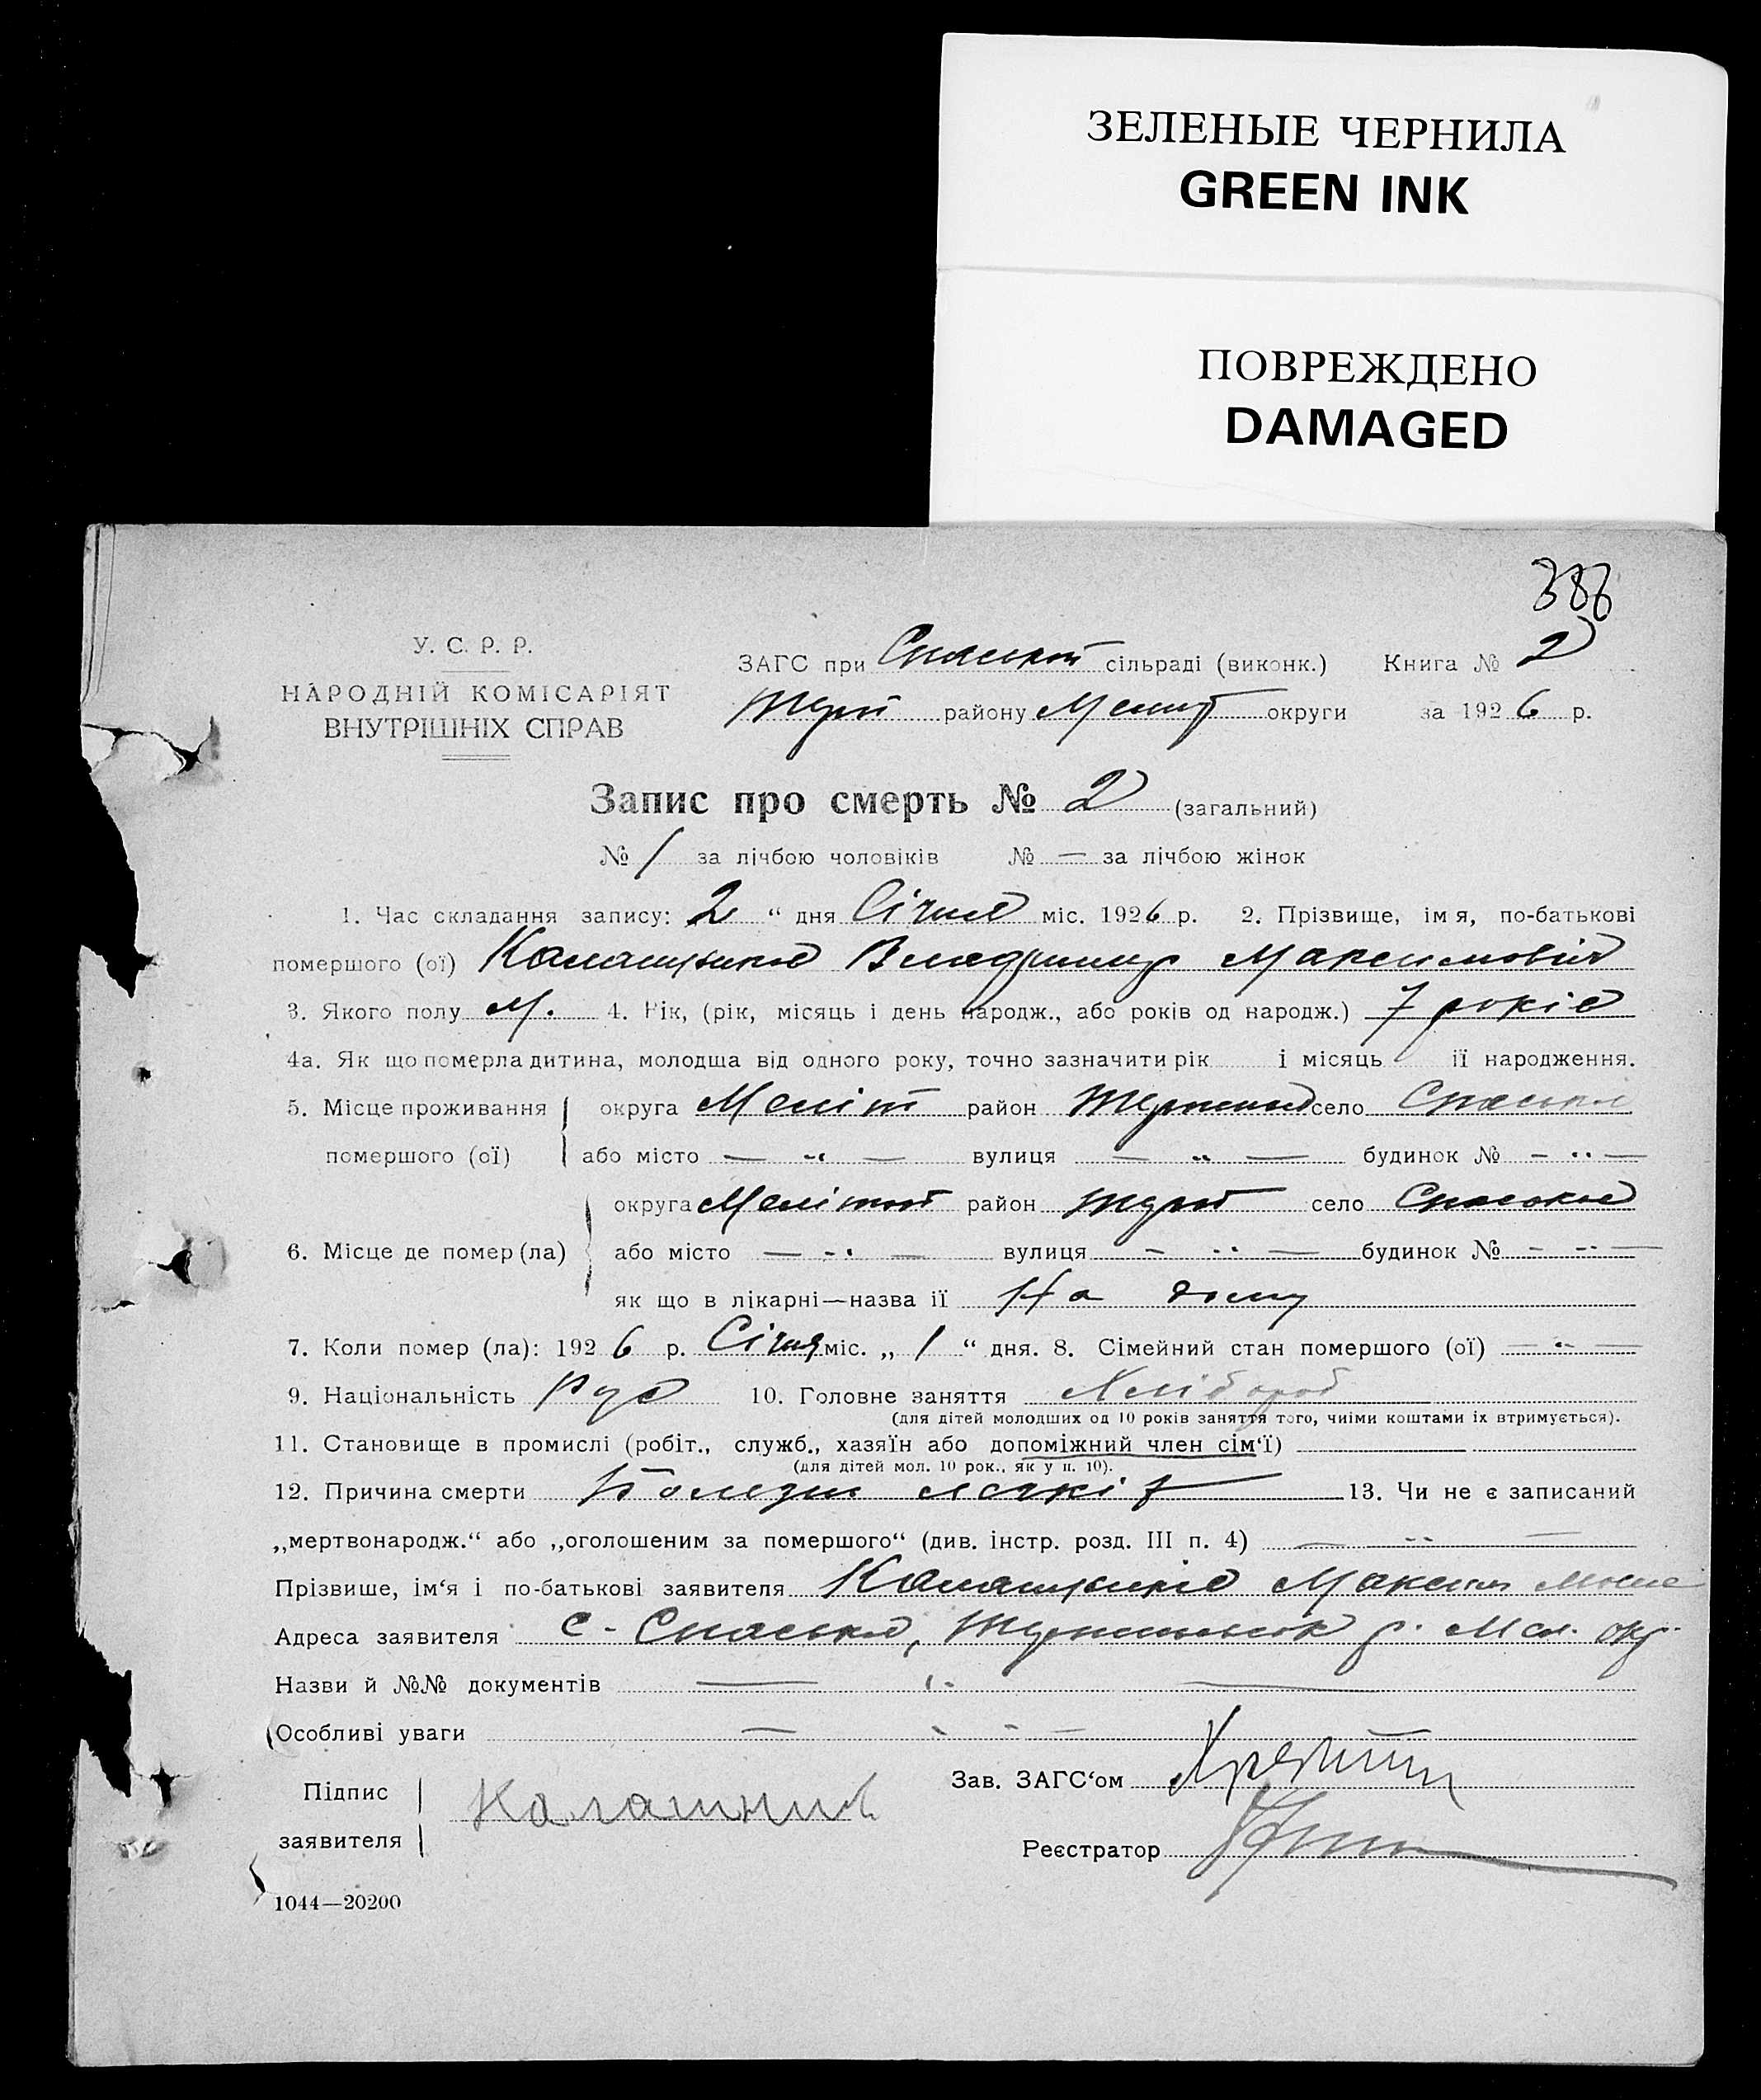 ЗЕЛЕНЫЕ ЧЕРНИЛА
GREEN INK
ПОВРЕЖДЕНО
DAMAGED
386
У. С. Р. Р.
НАРОДНІЙ КОМІСАРІЯТ
ВНУТРІШНІХ СПРАВ
ЗАГС при Спаській сільраді (виконк.) Книга № 2
району Меліт округи за 1926 р.
Запис про смерть № 2 (загальний)
№ 1 за лічбою чоловіків № — за лічбою жінок
1. Час складання запису: 2 “ дня Січня міс. 1926 р. 2. Прізвище, імя, по-батькові
помершого (ої) Калашников Владимир Максимович
3. Якого полу М. 4. Рік, (рік, місяць і день народж., або років од народж.) 7 років
4а. Як що померла дитина, молодща від одного року, точно зазначити рік і місяць її народження.
5. Місце проживання округа Меліт район село Спаське
помершого (ої) або місто — „ — вулиця — „ — будинок № — „ —
округа Меліт район село Спаское
6. Місце де помер (ла) або місто — „ — вулиця — „ — будинок № — „ —
як що в лікарні—назва її На дому
7. Коли помер (ла): 1926 р. Січня міс. „ 1 “ дня. 8. Сімейний стан помершого (ої) — „ —
9. Національність Рус 10. Головне заняття Хлібороб
(для дітей молодших од 10 років заняття того, чиїми коштами їх втримується).
11. Становище в промислі (робіт., служб., хазяїн або допоміжний член сім‘ї) —
(для дітей мол. 10 рок., як у п. 10).
12. Причина смерти 13. Чи не є записаний
„мертвонародж.“ або „оголошеним за помершого“ (див. інстр. розд. III п. 4) — „ —
Прізвище, ім‘я і по-батькові заявителя Калашників Максим
Адреса заявителя с. Спаське, р. Мел. окр.
Назви й №№ документів — „ —
Особливі уваги — „ —
Підпис
заявителя
Калашников
Зав. ЗАГС‘ом
Реєстратор
1044—20200